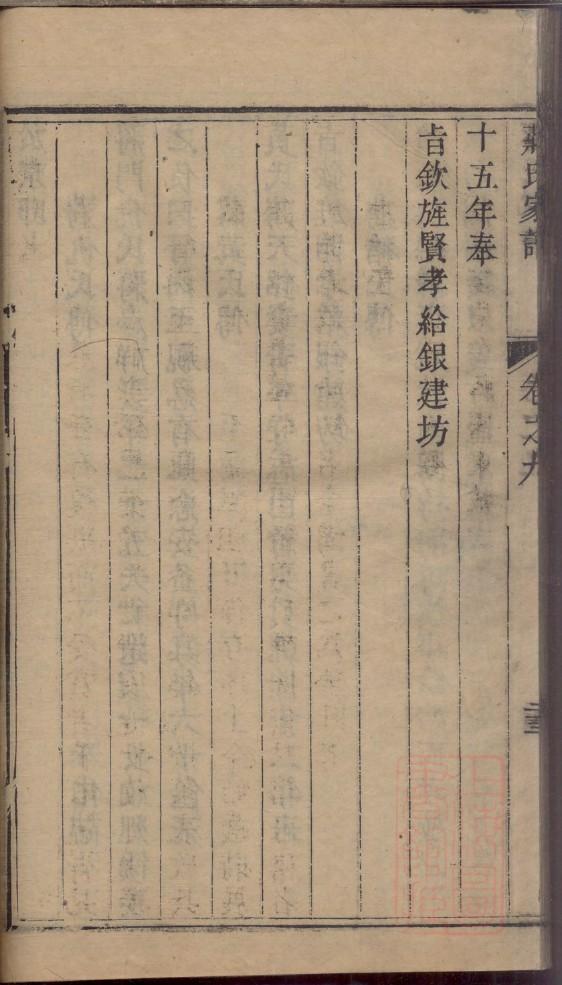 氏家譜
卷之九
十五年奉
旨欽旌賢孝給銀建坊